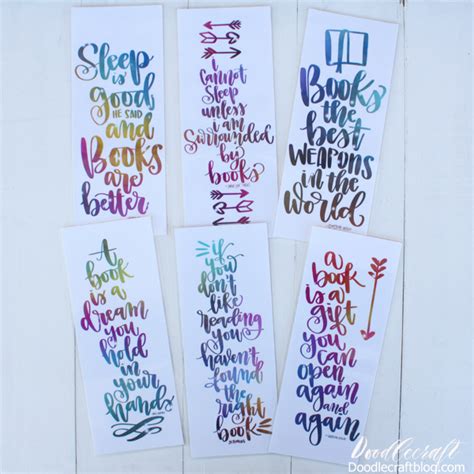 Sleep
is
good
HE SAID
and
Books
are
better
I
cannot
sleep
unless
i am
surrounded
by
books
Books
the
best
WEAPONS
IN THE
World
A
book
is a
dream
you
hold
in
your
hand
if
you
don't
like
reading
you
haven't
found
the
right
book
a
book
is a
gift
you
can
open
again
and
again
Doodlecraft
Doodlecraftblog.com